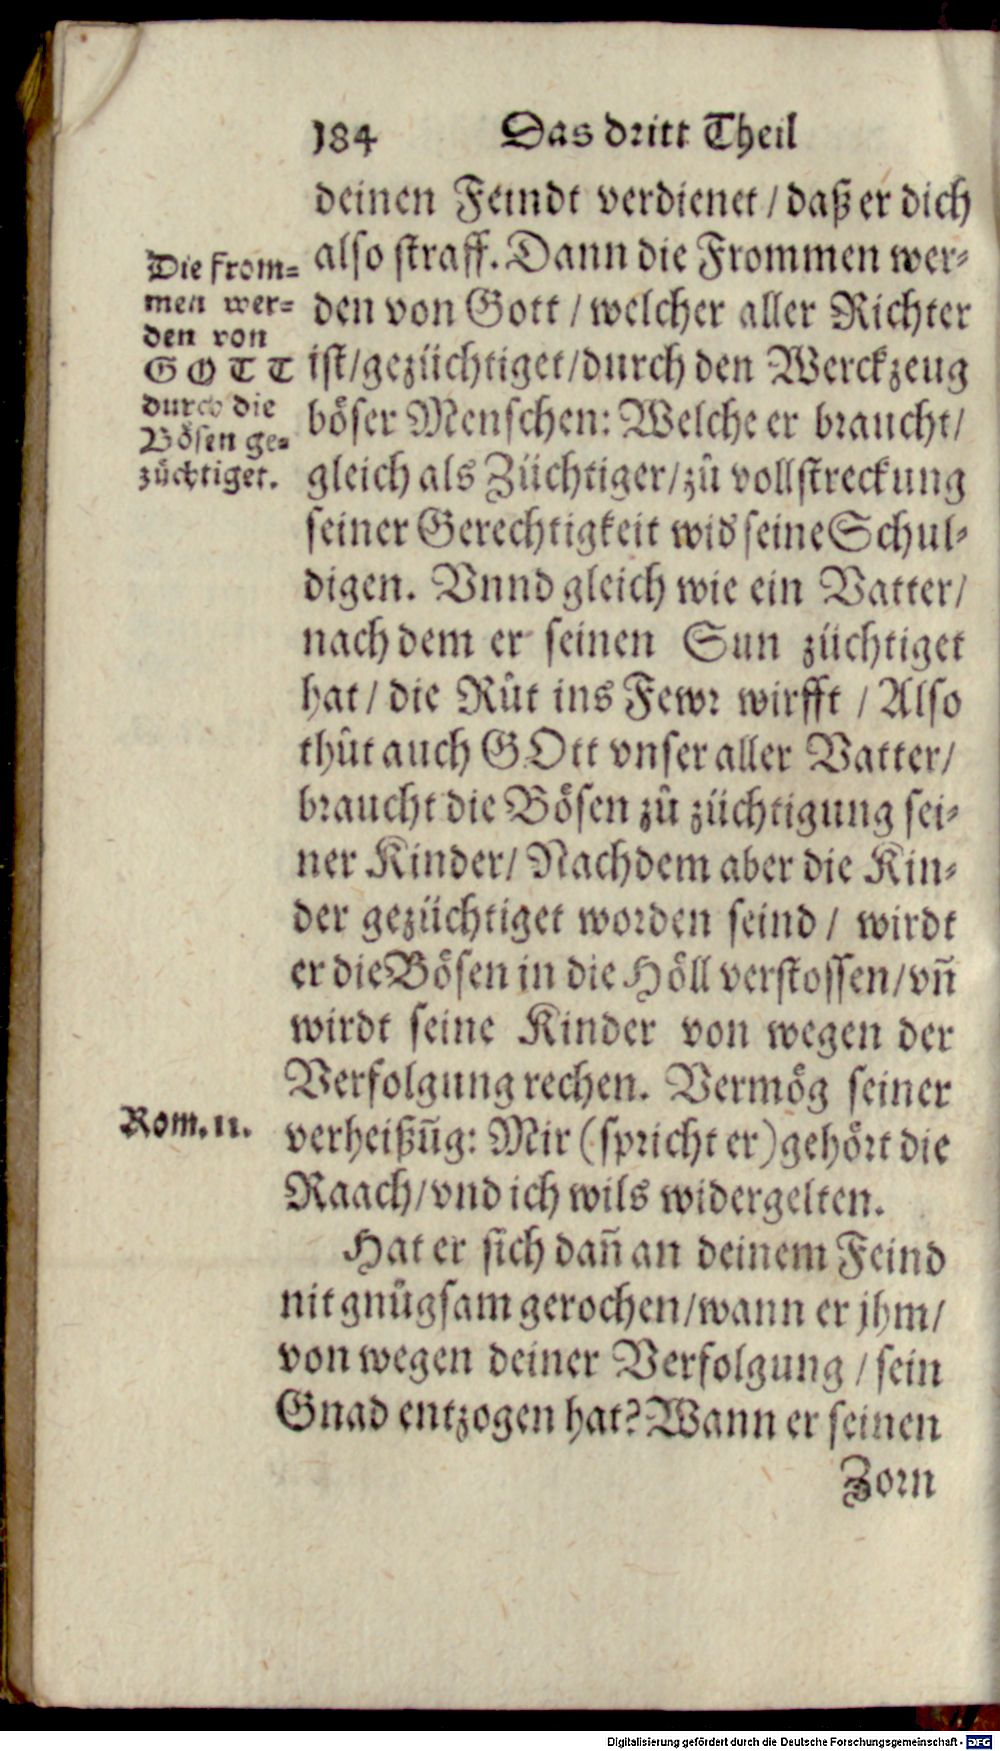 184 Das dritt Theil
deinen Feindt verdienet / daß er dich
also straff. Dann die Frommen wer⸗
den von Gott / welcher aller Richter
ist / gezüchtiget / durch den Werckzeug
böser Menschen: Welche er braucht /
gleich als Züchtiger / zů vollstreckung
seiner Gerechtigkeit wid seine Schul⸗
digen. Vnnd gleich wie ein Vatter /
nach dem er seinen Sun züchtiget
hat / die Růt ins Fewr wirfft / Also
thůt auch GOtt vnser aller Vatter /
braucht die Bösen zů züchtigung sei⸗
ner Kinder / Nachdem aber die Kin⸗
der gezüchtiget worden seind / wirdt
er die Bösen in die Höll verstossen / vñ
wirdt seine Kinder von wegen der
Verfolgung rechen. Vermög seiner
verheißũg: Mir (spricht er) gehört die
Raach / vnd ich wils widergelten.
Hat er sich dañ an deinem Feind
nit gnůgsam gerochen / wann er jhm /
von wegen deiner Verfolgung / sein
Gnad entzogen hat? Wann er seinen
Zorn
Die from⸗
men wer⸗
den von
GOTT
durch die
Bösen ge⸗
züchtiget.
Rom. 11.
Digitalisierung gefördert durch die Deutsche Forschungsgemeinschaft - DFG